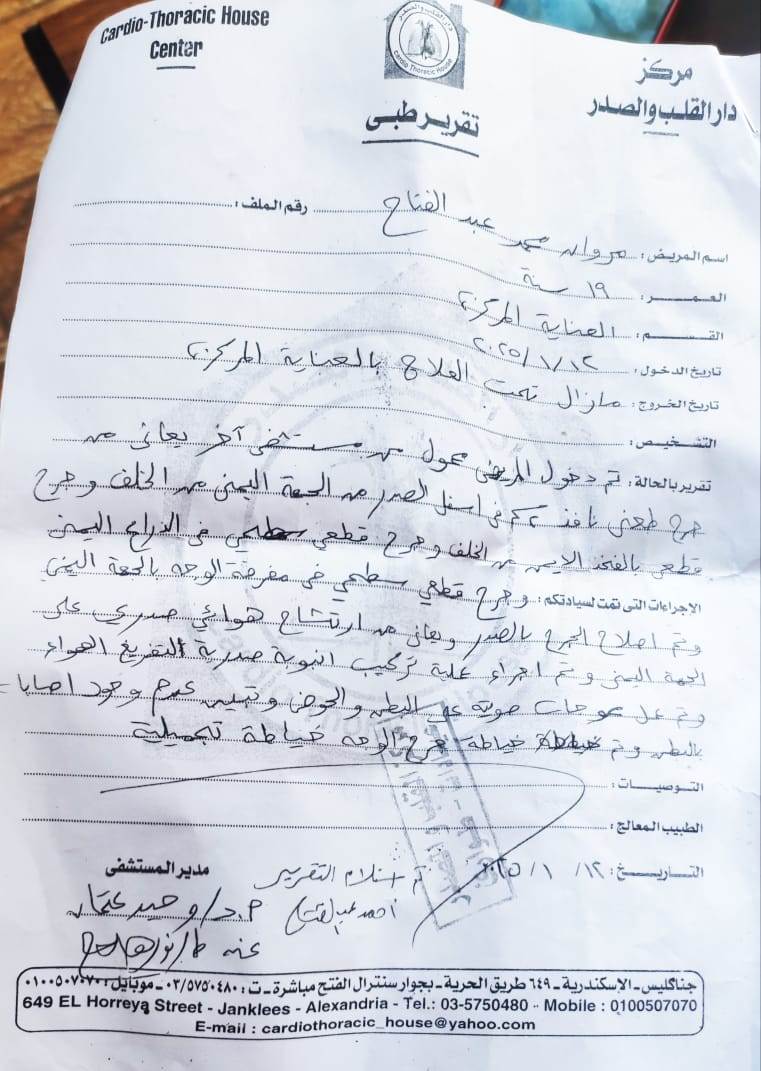 Cardio-Thoracic House
Center
دار القلب والصدر
Cardio Thoracic House
مركز
دار القلب والصدر
تقرير طبى
اسم المريض: مروان محمد عبد الفتاح رقم الملف:
العمـــر: ١٩ سنة
القســـم: العناية المركزة
تاريخ الدخول: ٢٠٢٥/١/١٢
تاريخ الخروج: مازال تحت العلاج بالعناية المركزة
التشخيـص:
تقرير بالحالة: تم دخول المريض محول من مستشفى آخر يعانى من
جرح طعنى نافذ ٢ كم فى اسفل الصدر من الجهة اليمنى من الخلف وجرح
قطعي بالفخذ الايمن من الخلف وجرح قطعي سطحي فى الذراع اليمنى
الإجراءات التى تمت لسيادتكم: وجرح قطعي سطحي فى الوجه بالجهة اليمنى
وتم اصلاح الجرح بالصدر ويعانى من ارتشاح هوائي صدري على
الجهة اليمنى وتم اجراء عملية تركيب انبوبة صدرية لتفريغ الهواء
وتم عمل موجات صوتية على البطن والحوض وتبين عدم وجود اصابات
بالبطن وتم خياطة جرح الوجه خياطة تجميلية
التوصيـــات:
الطبيب المعالج:
التـــاريـــخ: ٢٠٢٥/١/١٢
تم استلام التقرير
احمد عبدالفتاح
مدير المستشفى
جناكليس - الاسكندرية - ٦٤٩ طريق الحرية - بجوار سنترال الفتح مباشرة - ت: ٠٣/٥٧٥٠٤٨٠ - موبايل: ٠١٠٠٥٠٧٠٧٠
649 EL Horreya Street - Janklees - Alexandria - Tel.: 03-5750480 - Mobile : 0100507070
E-mail : cardiothoracic_house@yahoo.com